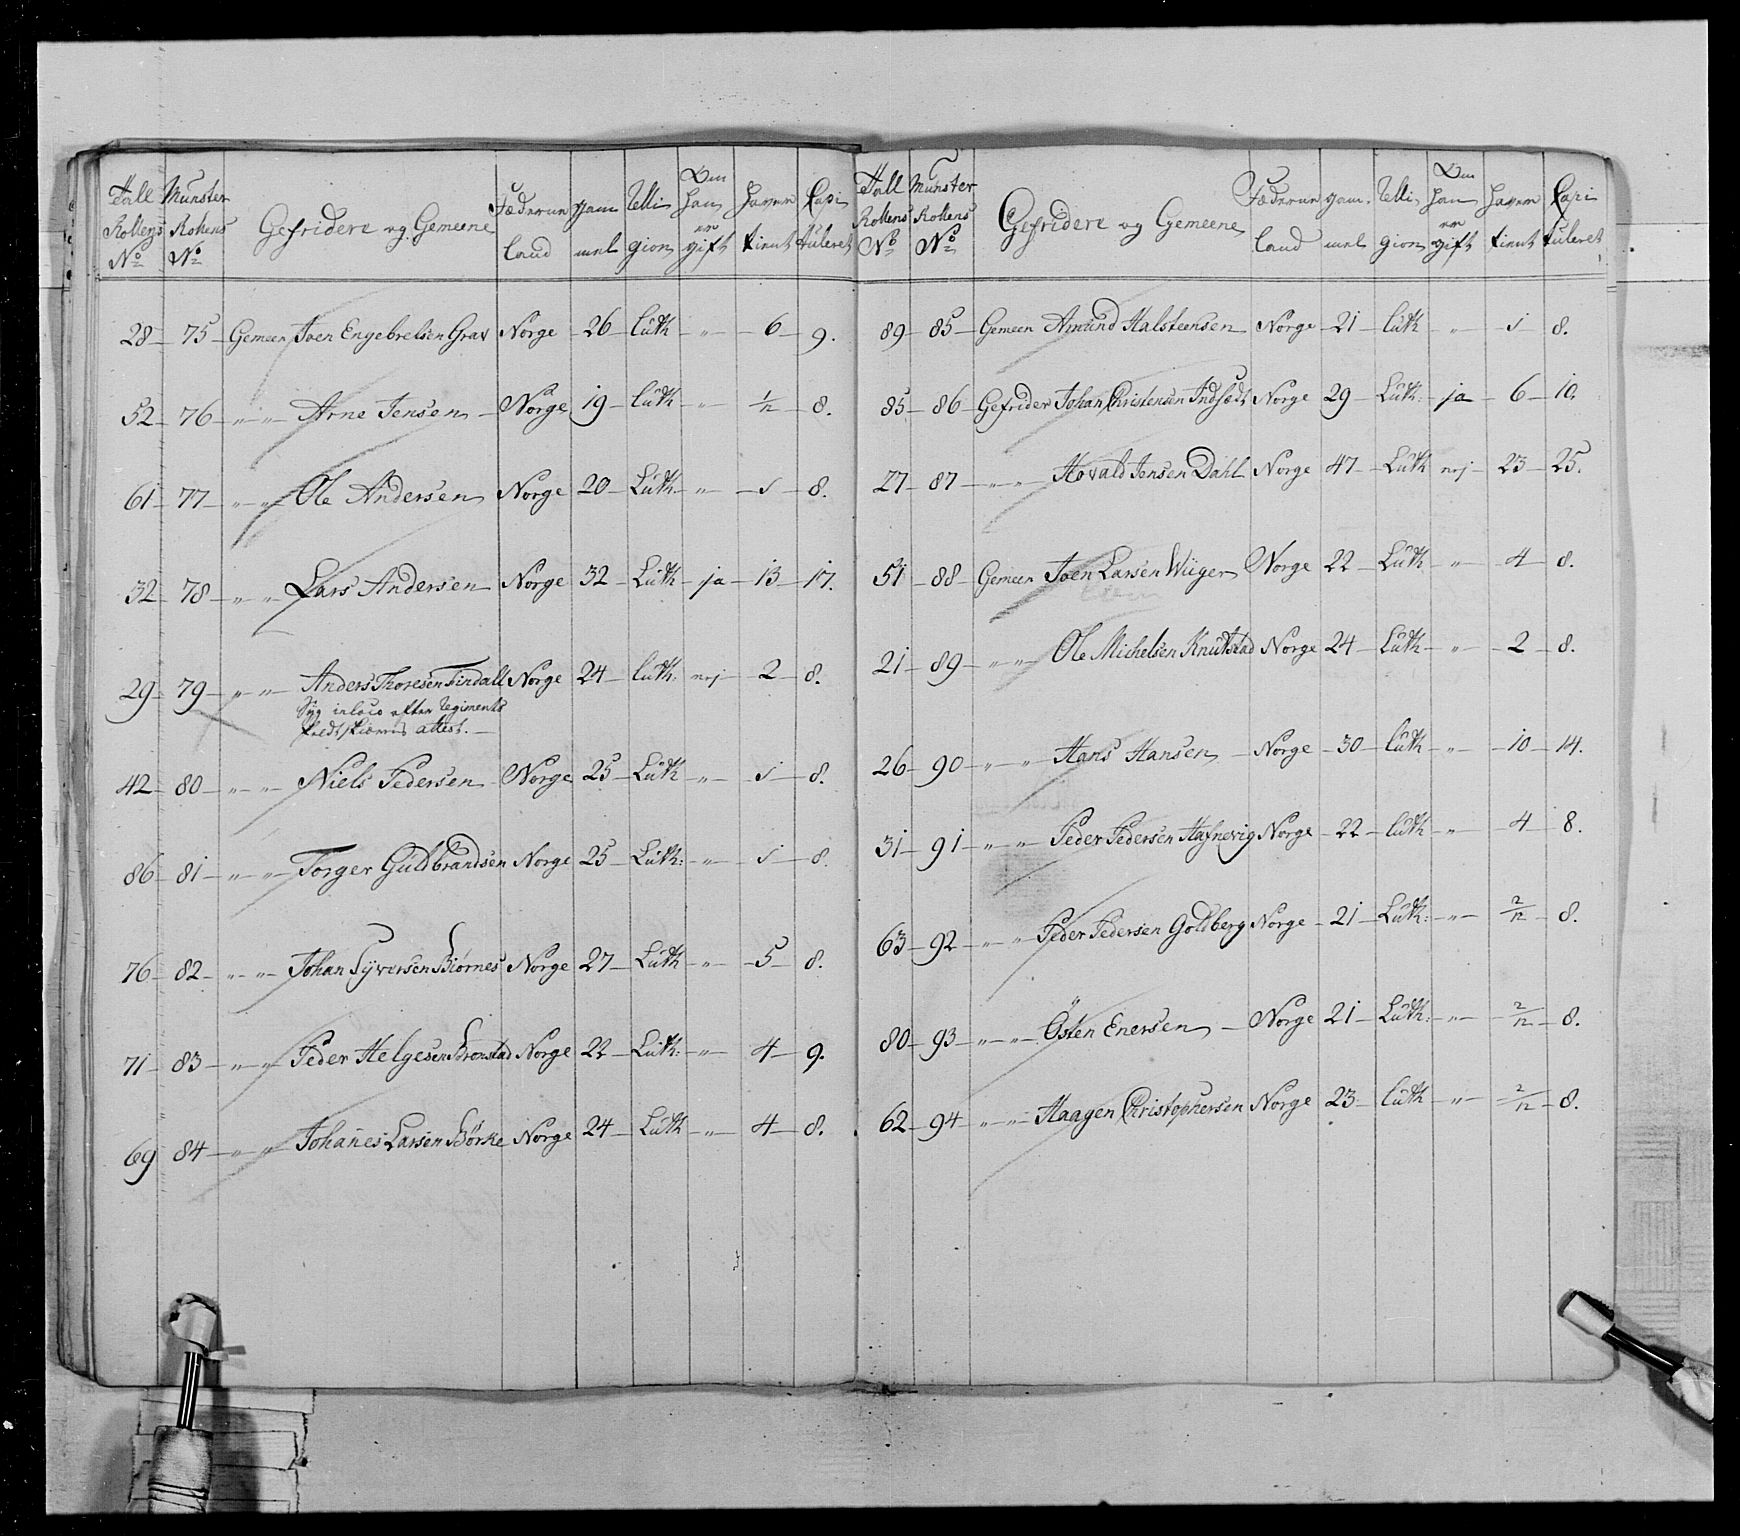 Tall Rollens No | Munster Rollens No | Gefridere og Gemeene | Fæderne land | gam mel | Relli gion | Om han er gift | haver tient | Capi tuleret
28 – 75 – Gemeen Joen Engebretsen Grav Norge – 26 – luth – " – 6 – 9.
52 – 76 – " – " – Arne Jensen – Norge 19 – luth – " – 1/12 – 8.
61 – 77 – " – " – Ole Andersen – Norge 20 – Luth – " – 1 – 8.
32 – 78 – " – " – Lars Andersen – Norge 32 – Luth – ja – 13 – 17.
29 – 79 – " – " – Anders Thoresen Tindall Norge 24 – luth: nej – 2 – 8.
Syg inloco efter Regiments
feldtskiærens attest. –
42 – 80 – " – " – Niels Pedersen – Norge 25 – Luth – " – 1 – 8.
86 – 81 – " – " – Torger Guldbrandsen Norge 25 – Luth: – " – 1 – 8.
76 – 82 – " – " – Johan Syversen Biørnes Norge 27 – Luth – " – 5 – 8.
71 – 83 – " – " – Peder Helgesen Bronstad Norge 22 – Luth: – " – 4 – 9.
69 84 – " – " – Johanes Larsen Børke Norge 24 – Luth – " – 4 – 8.
Tall Rollens No | Munster Rollens No | Gefridere og Gemeene | Fæderne land | gam mel | Relli gion | Om han er gift | haver tient | Capi tuleret
89 – 85 – Gemeen Amund Halsteensen – Norge – 21 – luth – " – 1 – 8.
85 – 86 – Gefrider Johan Christensen Indsedt Norge 29 – Luth: – ja – 6 – 10.
27 – 87 – " – " – Hovald Jensen Dahl Norge 47 – Luth nej – 23 – 25.
51 – 88 – Gemeen Joen Larsen Wiiger Norge 22 – Luth – " – 4 – 8.
21 – 89 – " – " – Ole Michelsen Knutstad Norge 24 – Luth – " – 2 – 8.
26 – 90 – " – " – Hans Hansen – Norge – 30 – luth – " – 10 – 14.
31 – 91 – " – " – Peder Pedersen Hafnevig Norge – 22 – luth – " – 4 – 8.
63 – 92 – " – " – Peder Pedersen Goldberg Norge – 21 – Luth: – " – 2/12 – 8.
80 – 93 – " – " – Östen Enersen – Norge 21 – Luth: – " – 2/12 – 8.
62 – 94 – " – " – Haagen Christophersen Norge 23 – luth – " – 2/12 – 8.